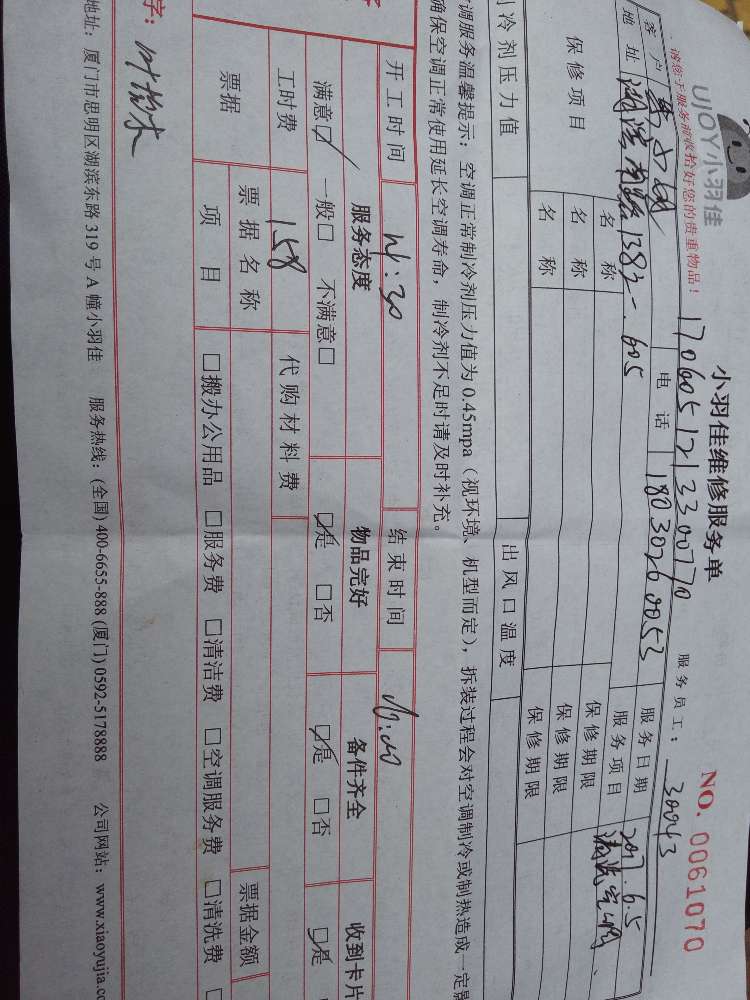 UJOY小羽佳
小羽佳维修服务单
NO. 0061070
请您于服务前收拾好您的贵重物品!
170605121330070
服务员工: 30043
客户
电话 18030260053
服务日期 2017.6.5
地址
605
服务项目 清洗空调
保修项目
名称
保修期限
名称
保修期限
名称
保修期限
制冷剂压力值
出风口温度
空调服务温馨提示: 空调正常制冷剂压力值为0.45mpa (视环境、机型而定), 拆装过程会对空调制冷或制热造成一定
确保空调正常使用延长空调寿命, 制冷剂不足时请及时补充。
开工时间
结束时间
服务态度
物品完好
备件齐全
收到卡片
满意☑ 一般□ 不满意□
☑是 □否
☑是 □否
☑是
工时费 158
代购材料费
票据
票据名称
票据金额
项目
□搬办公用品 □服务费 □清洁费 □空调服务费 □清洗费
字:
地址: 厦门市思明区湖滨东路319号A幢小羽佳 服务热线: (全国) 400-6655-888 (厦门) 0592-5178888 公司网站: www.xiaoyujia.c